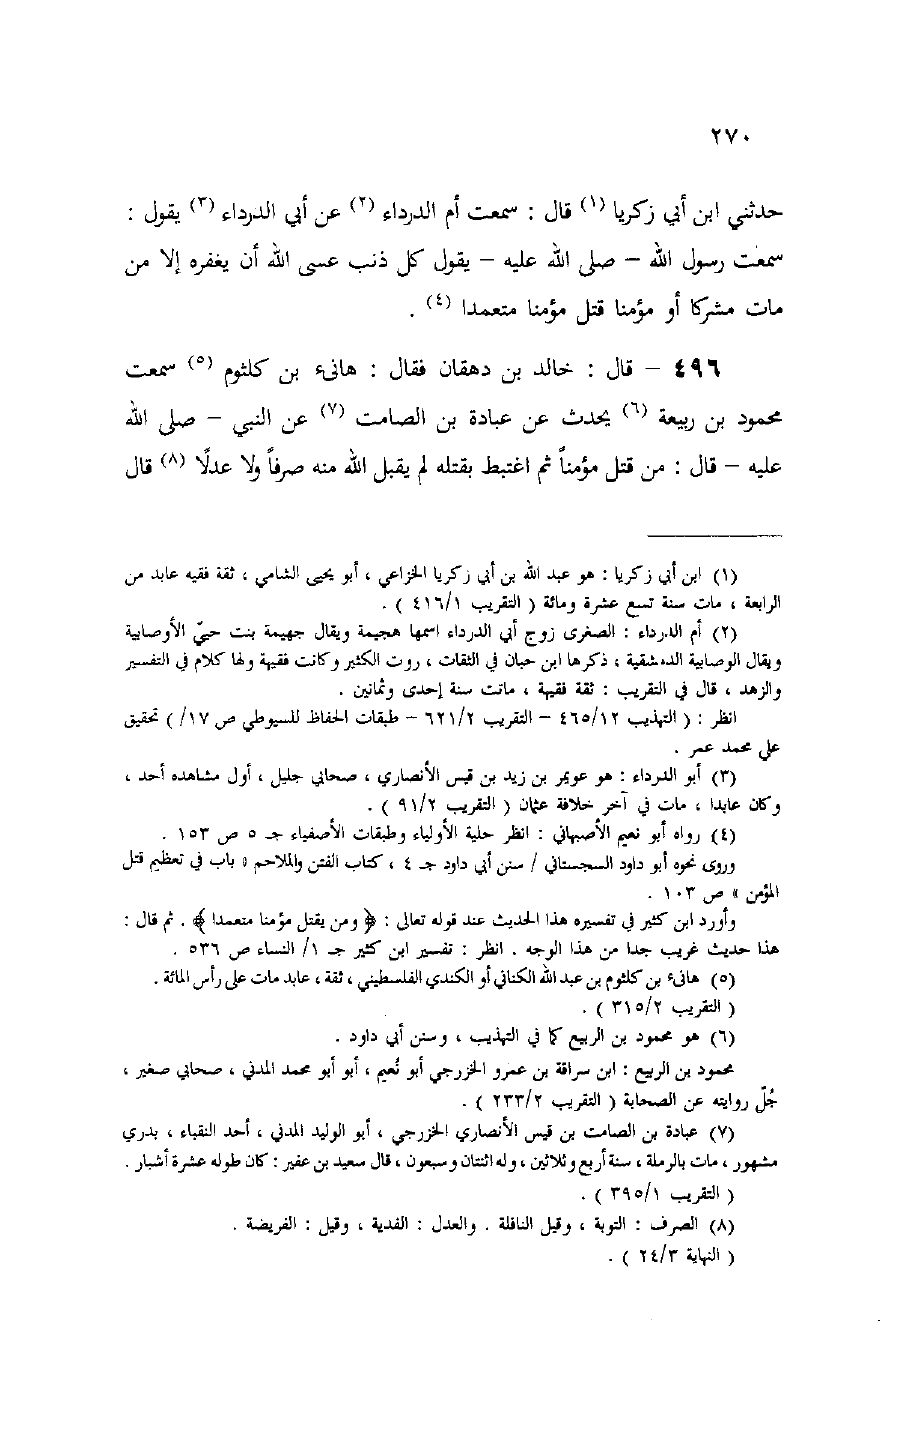 ٢٧٠
حدثني ابن أبي زكريا (١) قال : سمعت أم الدرداء (٢) عن أبي الدرداء (٣) يقول :
سمعت رسول الله – صلى الله عليه – يقول كل ذنب عسى الله أن يغفره إلا من
مات مشركا أو مؤمنا قتل مؤمنا متعمدا (٤) .
٤٩٦ – قال : خالد بن دهقان فقال : هانىء بن كلثوم (٥) سمعت
محمود بن ربيعة (٦) يحدث عن عبادة بن الصامت (٧) عن النبي – صلى الله
عليه – قال : من قتل مؤمناً ثم اغتبط بقتله لم يقبل الله منه صرفاً ولا عدلًا (٨) قال
(١) ابن أبي زكريا : هو عبد الله بن أبي زكريا الخزاعي ، أبو يحيى الشامي ، ثقة فقيه عابد من
الرابعة ، مات سنة تسع عشرة ومائة ( التقريب ٤١٦/١ ) .
(٢) أم الدرداء : الصغرى زوج أبي الدرداء اسمها هجيمة ويقال جهيمة بنت حيّ الأوصابية
ويقال الوصابية الدمشقية ، ذكرها ابن حبان في الثقات ، روت الكثير وكانت فقيهة ولها كلام في التفسير
والزهد ، قال في التقريب : ثقة فقيهة ، ماتت سنة إحدى وثمانين .
انظر : ( التهذيب ٤٦٥/١٢ – التقريب ٦٢١/٢ – طبقات الحفاظ للسيوطي ص ١٧/ ) تحقيق
علي محمد عمر .
(٣) أبو الدرداء : هو عويمر بن زيد بن قيس الأنصاري ، صحابي جليل ، أول مشاهده أحد ،
وكان عابدا ، مات في آخر خلافة عثمان ( التقريب ٩١/٢ ) .
(٤) رواه أبو نعيم الأصبهاني : انظر حلية الأولياء وطبقات الأصفياء جـ ٥ ص ١٥٣ .
وروى نحوه أبو داود السجستاني / سنن أبي داود جـ ٤ ، كتاب الفتن والملاحم « باب في تعظيم قتل
المؤمن » ص ١٠٣ .
وأورد ابن كثير في تفسيره هذا الحديث عند قوله تعالى : ﴿ ومن يقتل مؤمنا متعمدا ﴾ . ثم قال :
هذا حديث غريب جدا من هذا الوجه . انظر : تفسير ابن كثير جـ ١/ النساء ص ٥٣٦ .
(٥) هانىء بن كلثوم بن عبد الله الكناني أو الكندي الفلسطيني ، ثقة ، عابد مات على رأس المائة .
( التقريب ٣١٥/٢ ) .
(٦) هو محمود بن الربيع كما في التهذيب ، وسنن أبي داود .
محمود بن الربيع : ابن سراقة بن عمرو الخزرجي أبو نُعيم ، أبو أبو محمد المدني ، صحابي صغير ،
جُلّ روايته عن الصحابة ( التقريب ٢٣٣/٢ ) .
(٧) عبادة بن الصامت بن قيس الأنصاري الخزرجي ، أبو الوليد المدني ، أحد النقباء ، بدري
مشهور ، مات بالرملة ، سنة أربع وثلاثين ، وله اثنتان وسبعون ، قال سعيد بن عفير : كان طوله عشرة أشبار .
( التقريب ٣٩٥/١ ) .
(٨) الصرف : التوبة ، وقيل النافلة . والعدل : الفدية ، وقيل : الفريضة .
( النهاية ٢٤/٣ ) .